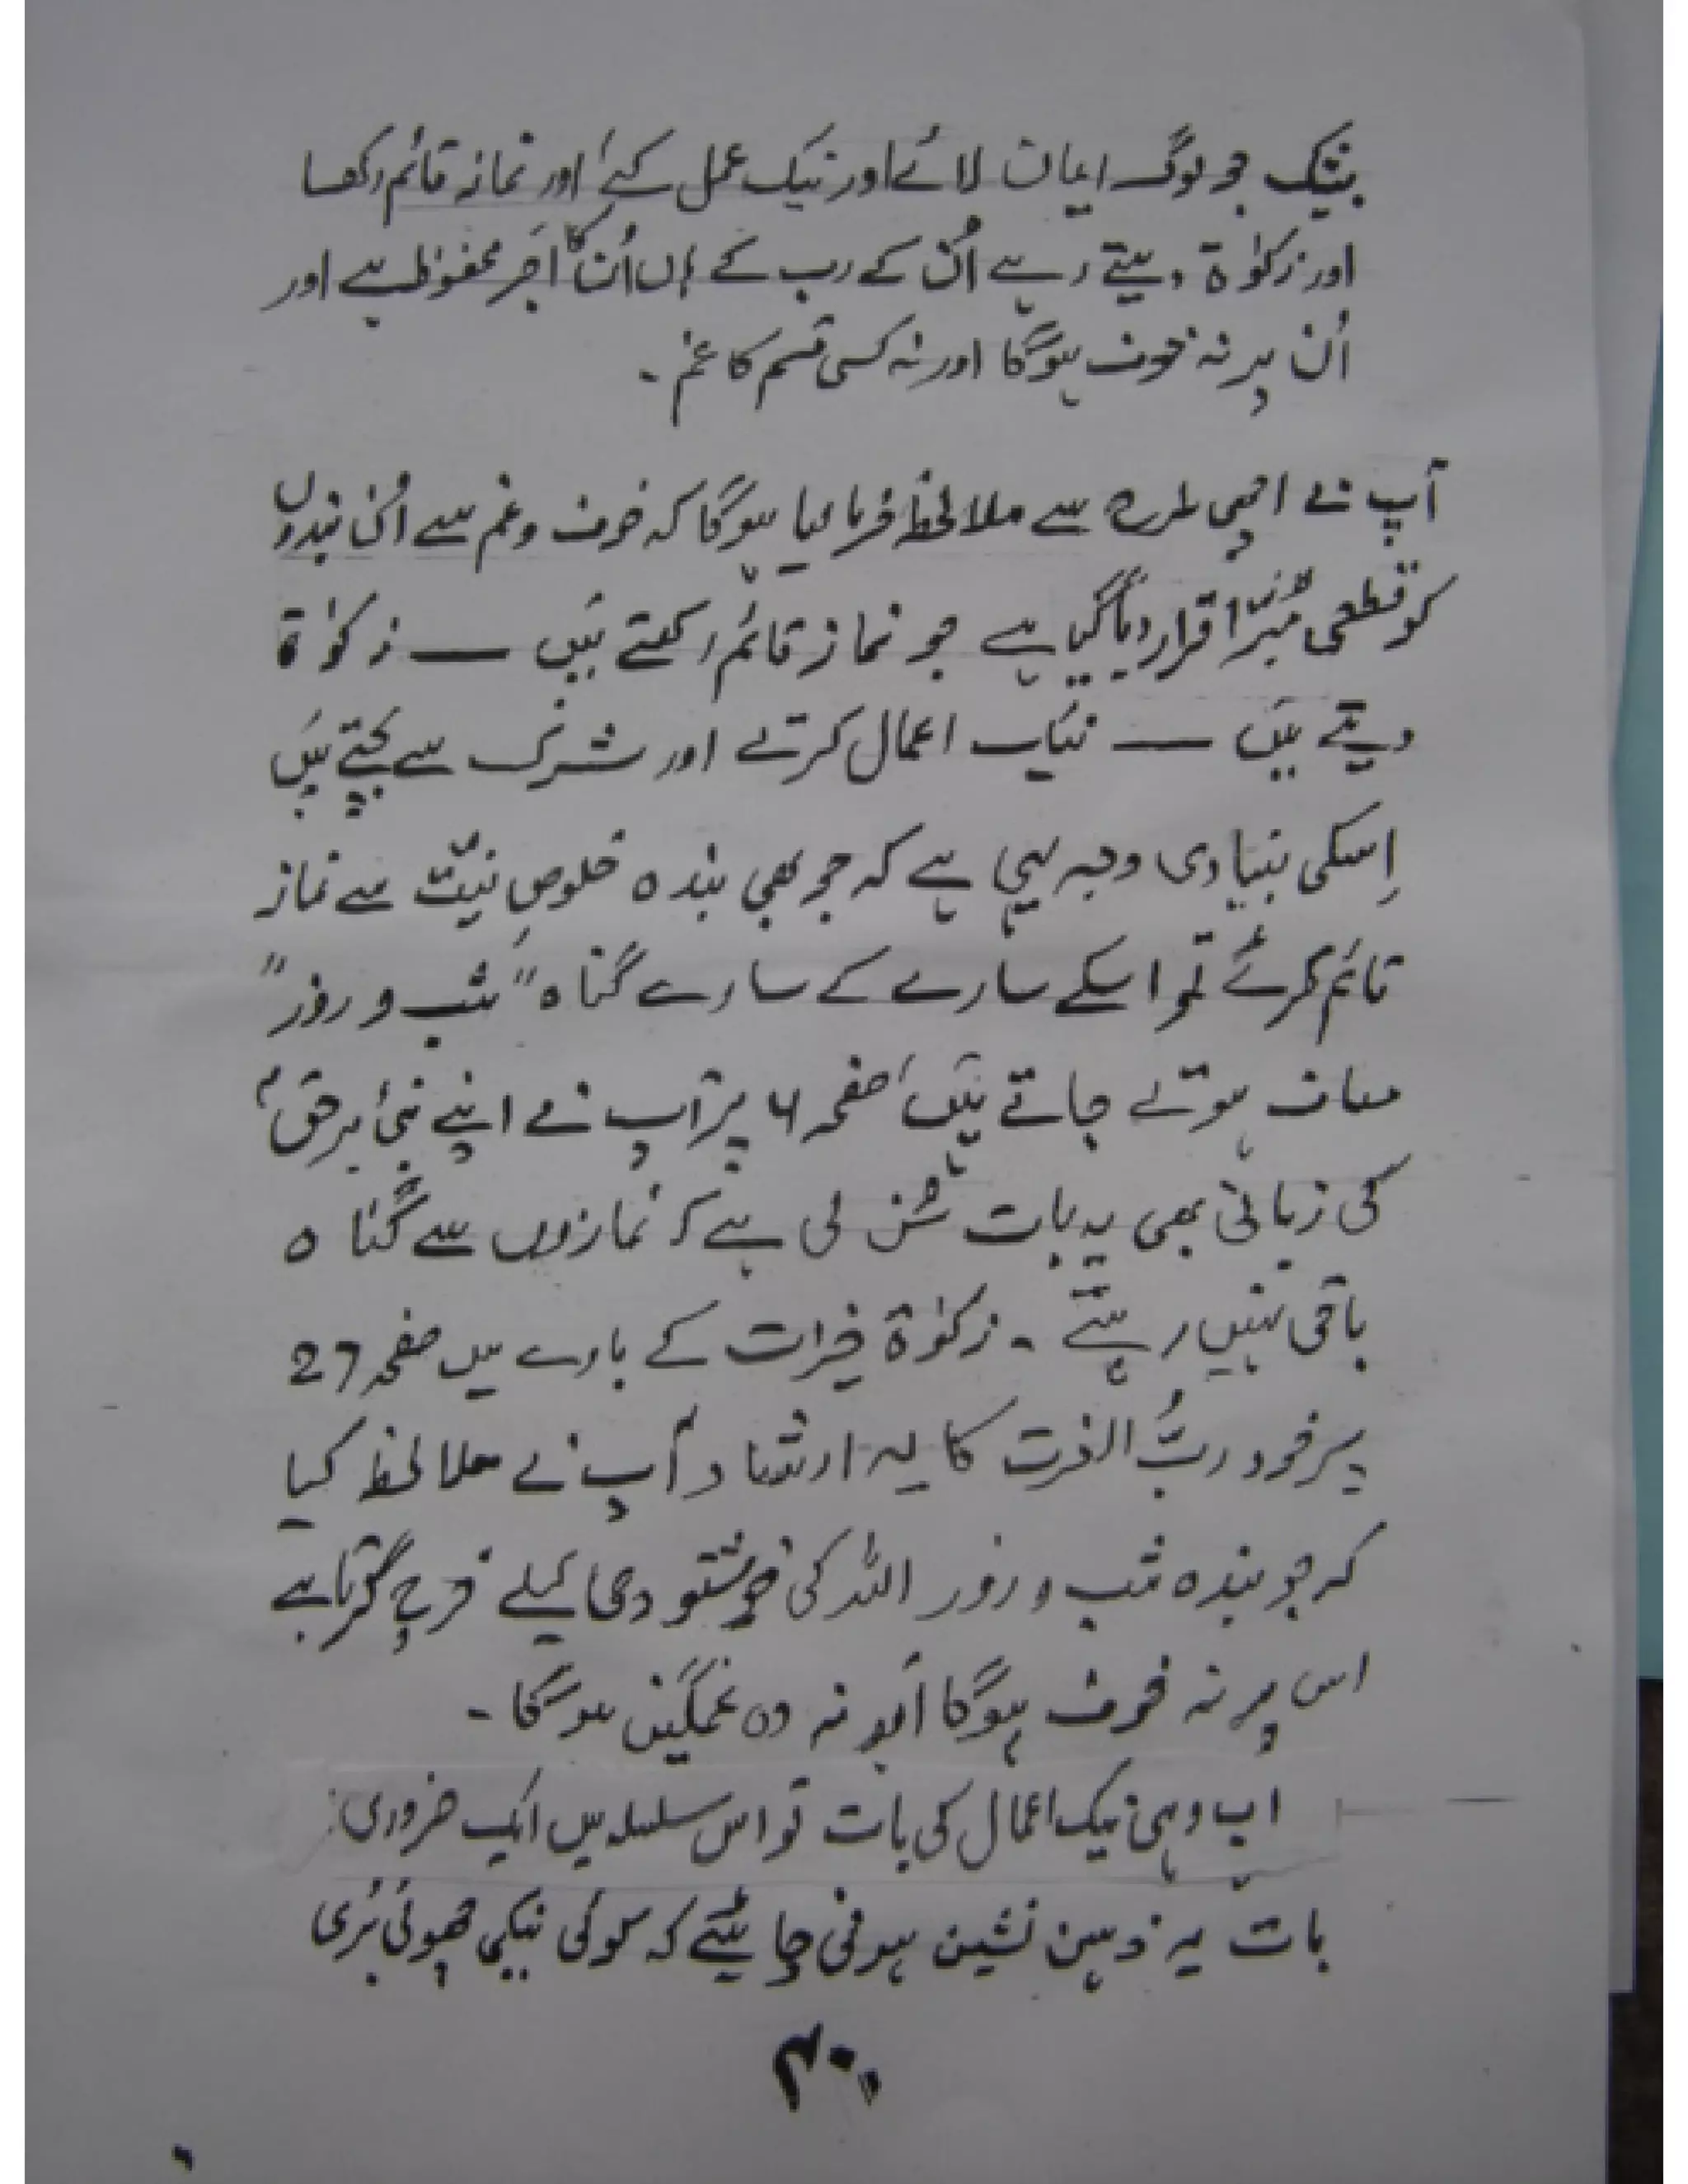 بیشک جو لوگ ایمان لائے اور نیک عمل کیے اور نماز قائم رکھا
اور زکوٰۃ دیتے رہے اُن کے رب کے ہاں اُن کا اَجر محفوظ ہے اور
اُن پر نہ خوف ہوگا اور نہ کسی قسم کا غم ۔
آپ نے اچھی طرح سے ملاحظہ فرمالیا ہوگا کہ خوف و غم سے اُن بندوں
کو قطعی مُبرّا قرار دیا گیا ہے جو نماز قائم رکھتے ہیں — زکوٰۃ
دیتے ہیں — نیک اعمال کرتے اور شرک سے بچتے ہیں
اِسکی بنیادی وجہ یہی ہے کہ جو بھی بندہ خلوصِ نیّت سے نماز
قائم کرئے تو اسکے سارے کے سارے گناہ "شب و روز"
معاف ہوتے جاتے ہیں، صفحہ ۶ پر آپ نے اپنے نبیٔ برحق ؐ
کی زبانی بھی یہ بات سُن لی ہے کہ نمازوں سے گناہ
باقی نہیں رہتے ۔ زکوٰۃ خیرات کے بارے میں صفحہ 27
پر خود ربُّ العزت کا یہ ارشاد آپ نے ملاحظہ کیا
کہ جو بندہ شب و روز اللہ کی خوشنودی کیلے خرچ کرتا ہے
اس پر نہ خوف ہوگا اور نہ وہ غمگین ہوگا ۔
اب رہی نیک اعمال کی بات تو اس سلسلہ میں ایک ضروری
بات یہ ذہین نشین ہونی چاہیئے کہ کوئی نیکی چھوٹی بڑی
۴۰